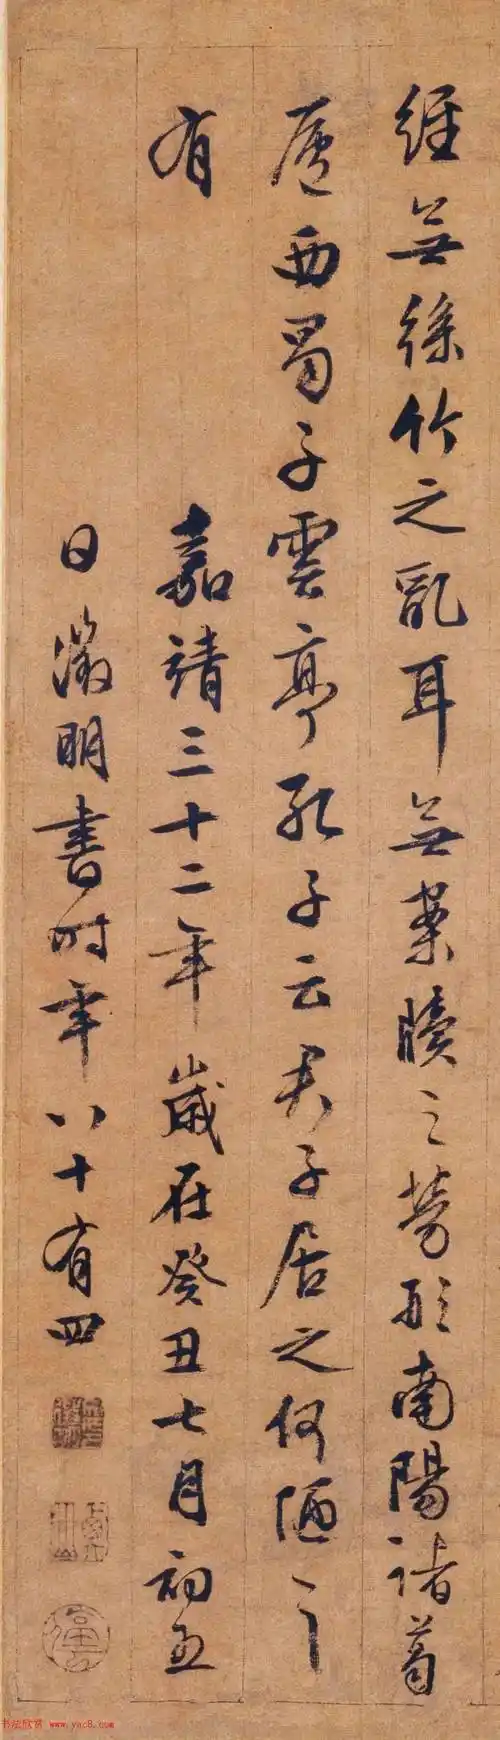 經無絲竹之乱耳無案牘之勞形南陽諸葛
廬西蜀子雲亭孔子云君子居之何陋之
有
嘉靖三十二年歲在癸丑七月初五
日徵明書時年八十有四
书法欣赏 www.yac8.com